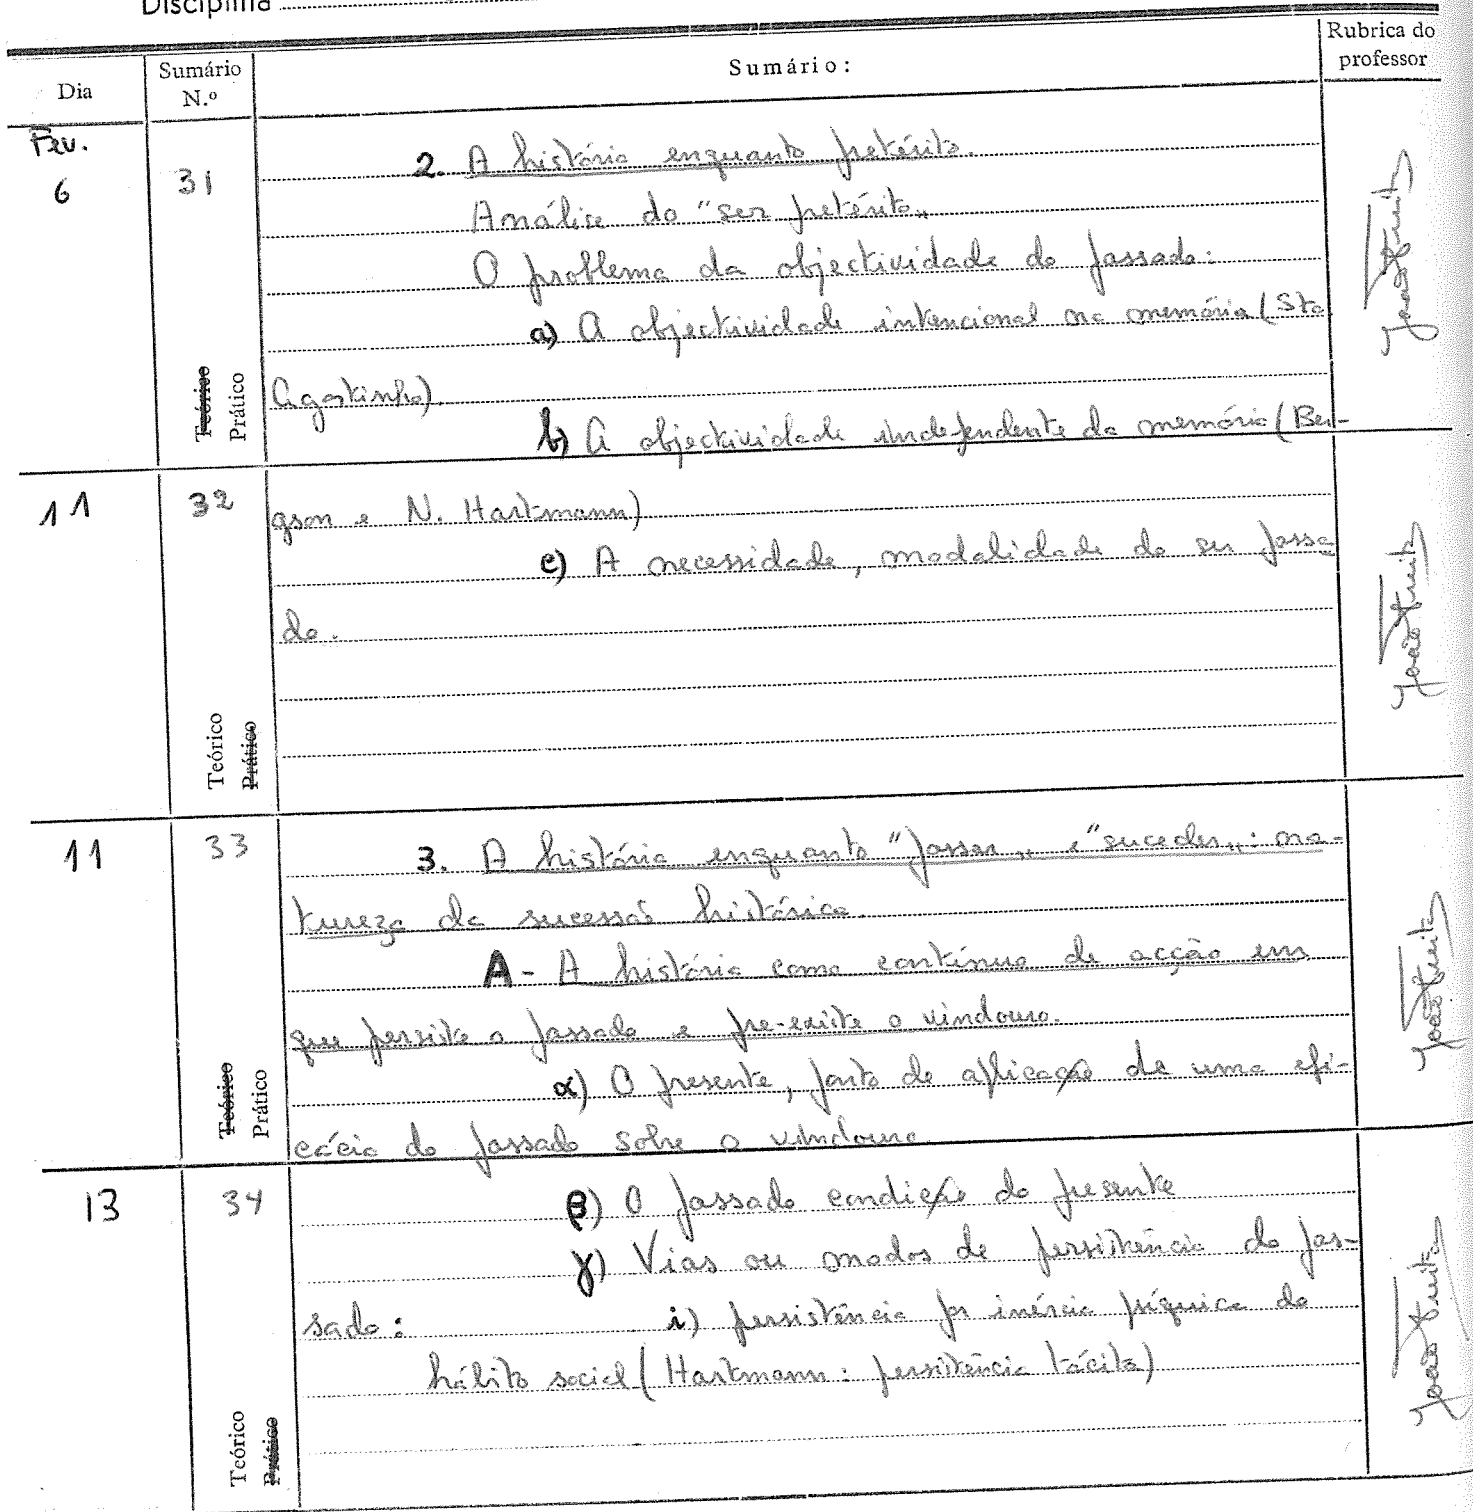 Disciplina
Dia
Sumário N.º
Sumário:
Rubrica do professor
Fev.
6
31
Teórico
Prático
2. A história enquanto pretérito.
Análise do "ser pretérito„
O problema da objectividade do passado:
a) A objectividade intencional na memória (Sto
Agostinho).
b) A objectividade independente da memória (Ber-
11
32
Teórico
Prático
gson e N. Hartmann)
c) A necessidade, modalidade do ser passa
do.
11
33
Teórico
Prático
3. A história enquanto "passar„ e "suceder„: na-
tureza da sucessão histórica.
A - A história como contínuo de acção em
que persiste o passado e pre-existe o vindouro.
α) O presente, ponto de aplicação de uma efi-
cácia do passado sobre o vindouro.
13
34
Teórico
Prático
β) O passado condição do presente
γ) Vias ou modos de persistência do pas-
sado:
i) persistência por inércia psíquica do
hábito social (Hartmann: persistência tácita)